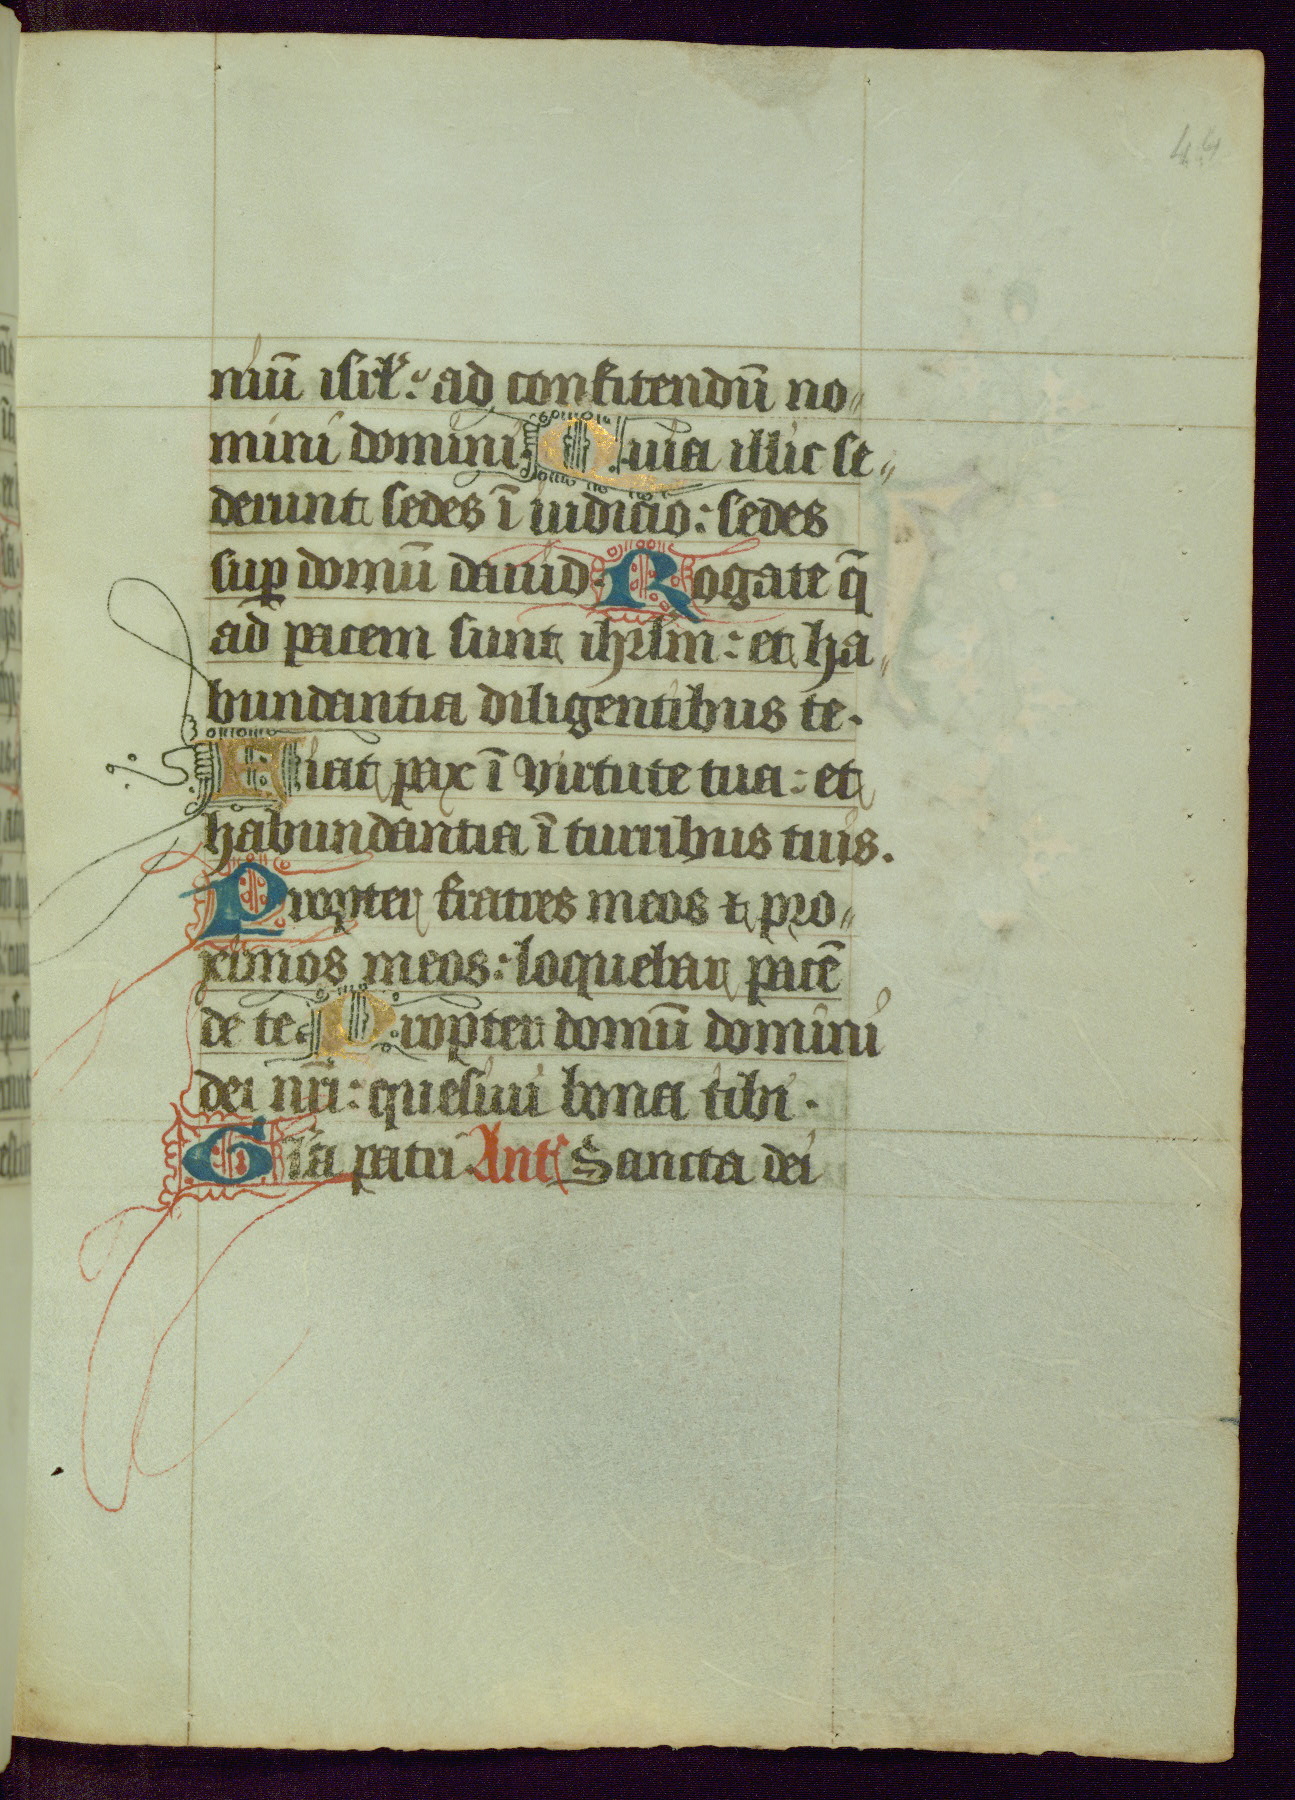 44
niū isrl': ad confitendū no〃
mini domini. Quia illic se〃
derunt sedes ī iudicio: sedes
sup domū dauid. Rogate q̄
ad pacem sunt ihrlm: et ha〃
bundantia diligentibus te.
Fiat pax ī virtute tua: et
habundantia ī turribus tuis.
Propter fratres meos ⁊ pro〃
ximos meos: loquebar pacē
de te. Propter domū domini
dei nr̄i: quesiui bona tibi.
Gl'ia patri Ant Sancta dei